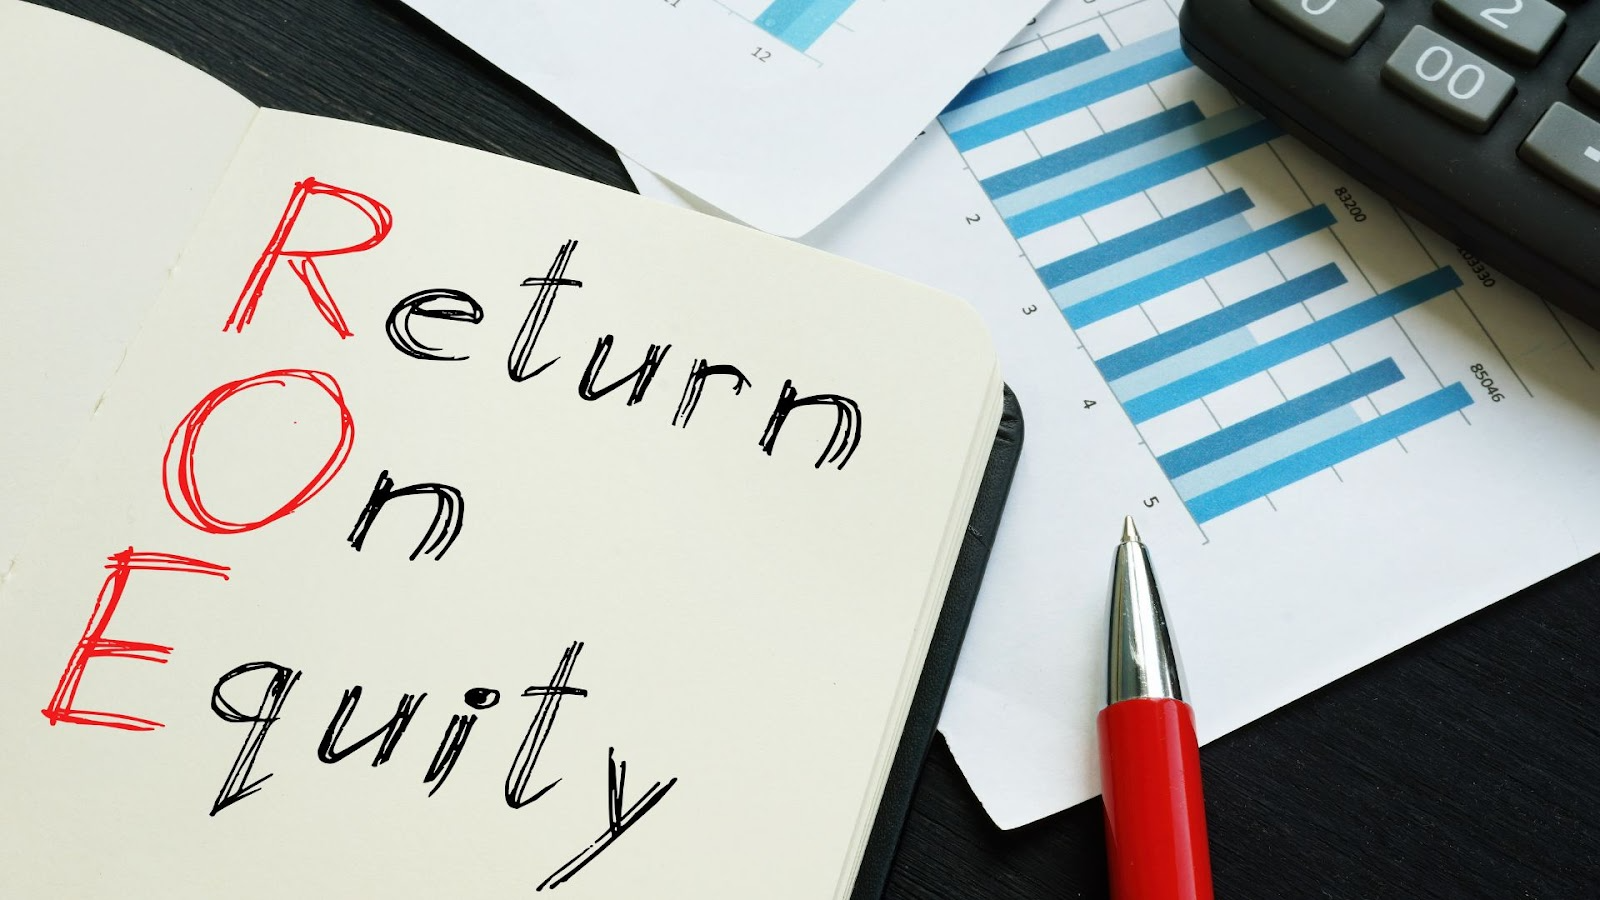 Return
On
Equity
12
2
3
4
5
83200
103330
85046
0
2
00